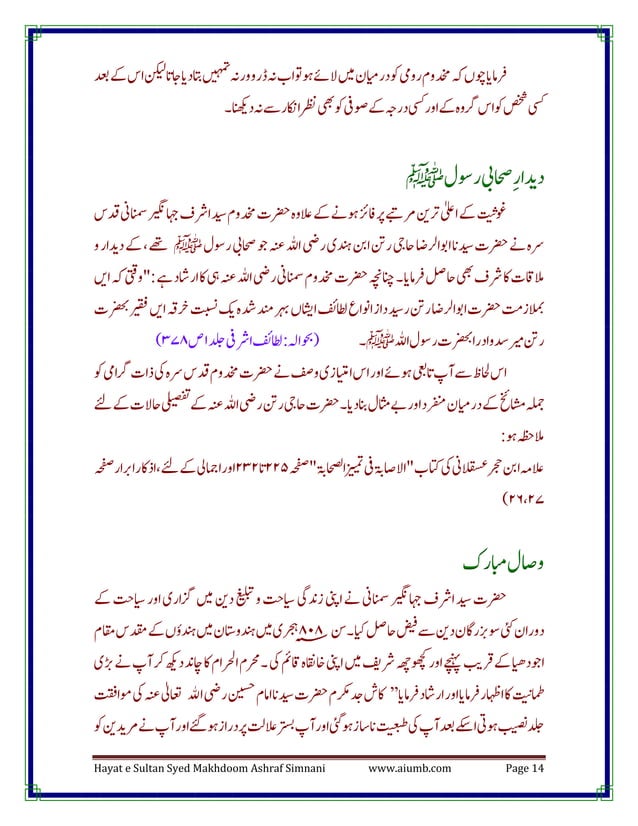 فرمایا چوں کہ مخدوم رومی کو درمیان میں لائے ہو تو اب نہ ڈرو ورنہ تمہیں بتا دیا جاتا لیکن اس کے بعد
کسی شخص کو اس گروہ کے اور کسی درجہ کے صوفی کو بھی نظر انکار سے نہ دیکھنا۔
دیدارِ صحابی رسول ﷺ
غوثیت کے اعلیٰ ترین مرتبے پر فائز ہونے کے علاوہ حضرت مخدوم سید اشرف جہانگیر سمنانی قدس
سرہ نے حضرت سیدنا ابوالرضا حاجی رتن ابن ہندی رضی اللہ عنہ جو صحابی رسول ﷺ تھے ، کے دیدار و
ملاقات کا شرف بھی حاصل فرمایا۔ چنانچہ حضرت مخدوم سمنانی رضی اللہ عنہ ہی کا ارشاد ہے :"وقتی کہ ایں
بملازمت حضرت ابوالرضا رتن رسید و از انواع لطائف ایشاں بہرہ مند شدہ یک نسبت خرقہ ایں فقیر بحضرت
رتن میرسد و او را بحضرت رسول اللہ ﷺ۔ (بحوالہ: لطائف اشرفی جلد ا ص ۳۷۸)
اس لحاظ سے آپ تابعی ہوئے اور اس امتیازی وصف نے حضرت مخدوم قدس سرہ کی ذات گرامی کو
جملہ مشائخ کے درمیان منفرد اور بے مثال بنا دیا۔ حضرت حاجی رتن رضی اللہ عنہ کے تفصیلی حالات کے لئے
ملاحظہ ہو:
علامہ ابن حجر عسقلانی کی کتاب "الاصابۃ فی تمییز الصحابۃ" صفحہ ۲۲۵ تا ۲۳۲ اور اجمالی کے لئے ،اذکار ابرار صفحہ
۲۶،۲۷)
وصال مبارک
حضرت سید اشرف جہانگیر سمنانی نے اپنی زندگی سیاحت و تبلیغ دین میں گزاری اور سیاحت کے
دوران کئی سو بزرگان دین سے فیض حاصل کیا۔ سن ۸۰۸ ہجری میں ہندوستان میں ہندؤں کے مقدس مقام
اجودھیا کے قریب پہنچے اور کچھوچھہ شریف میں اپنی خانقاہ قائم کی۔ محرم الحرام کا چاند دیکھ کر آپ نے بڑی
طمانیت کا اظہار فرمایا اور ارشاد فرمایا ”کاش جد مکرم حضرت سیدنا امام حسین رضی اللہ تعالیٰ عنہ کی موافقت
جلد نصیب ہوتی اسکے بعد آپ کی طبیعت ناساز ہو گئی اور آپ بستر علالت پر دراز ہو گئے اور آپ نے مریدین کو
Hayat e Sultan Syed Makhdoom Ashraf Simnani www.aiumb.com Page 14